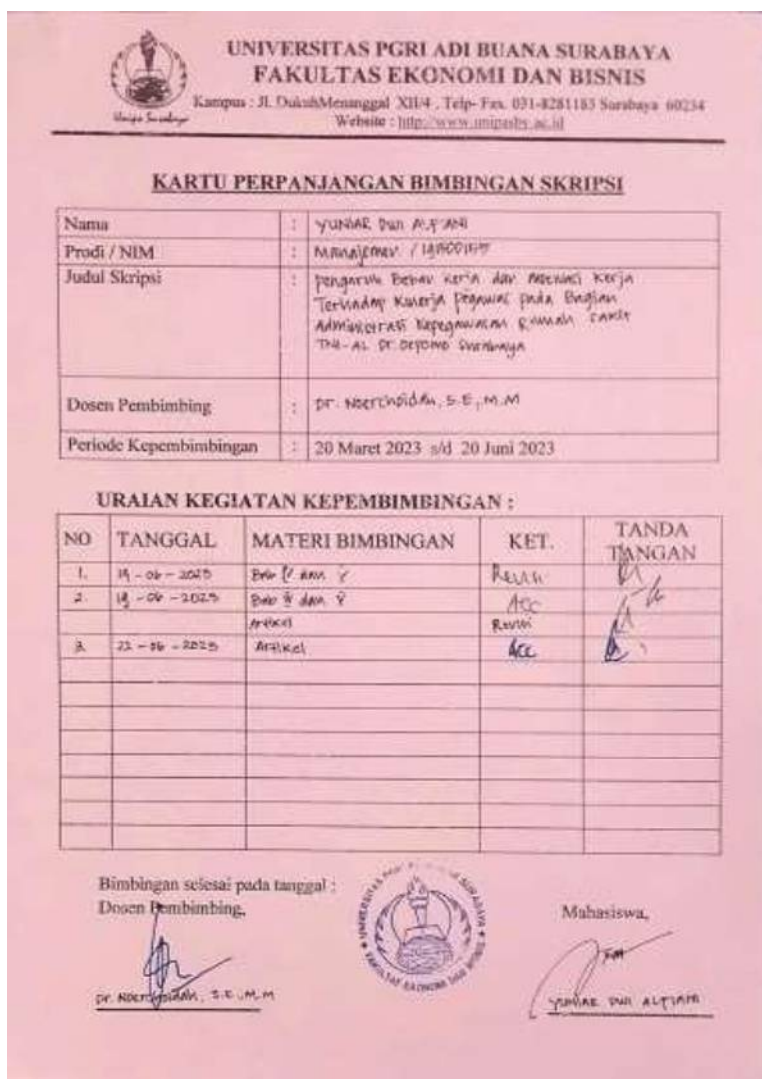 UNIVERSITAS PGRI ADI BUANA SURABAYA
FAKULTAS EKONOMI DAN BISNIS
Kampus : Jl. DukuhMenanggal XII/4 , Telp- Fax. 031-8281183 Surabaya 60234
Website : http://www.unipasby.ac.id
KARTU PERPANJANGAN BIMBINGAN SKRIPSI
Nama : YUNIAR DWI ALFIANI
Prodi / NIM : Manajemen /
Judul Skripsi : Pengaruh Beban Kerja dan Motivasi Kerja
Terhadap Kinerja Pegawai pada Bagian
Administrasi Kepegawaian Rumah Sakit
TNI-AL Dr. Oepomo Surabaya
Dosen Pembimbing : Dr. Noerchoidah, S.E, M.M
Periode Kepembimbingan : 20 Maret 2023 s/d 20 Juni 2023
URAIAN KEGIATAN KEPEMBIMBINGAN :
NO TANGGAL MATERI BIMBINGAN KET. TANDA TANGAN
1. Bab dan Revisi
2. Bab dan Acc
Artikel Revisi
3. Artikel Acc
Bimbingan selesai pada tanggal :
Dosen Pembimbing,
Mahasiswa,
Dr. Noerchoidah, S.E, M.M
YUNIAR DWI ALFIANI
SURABAYA
FAKULTAS EKONOMI DAN BISNIS